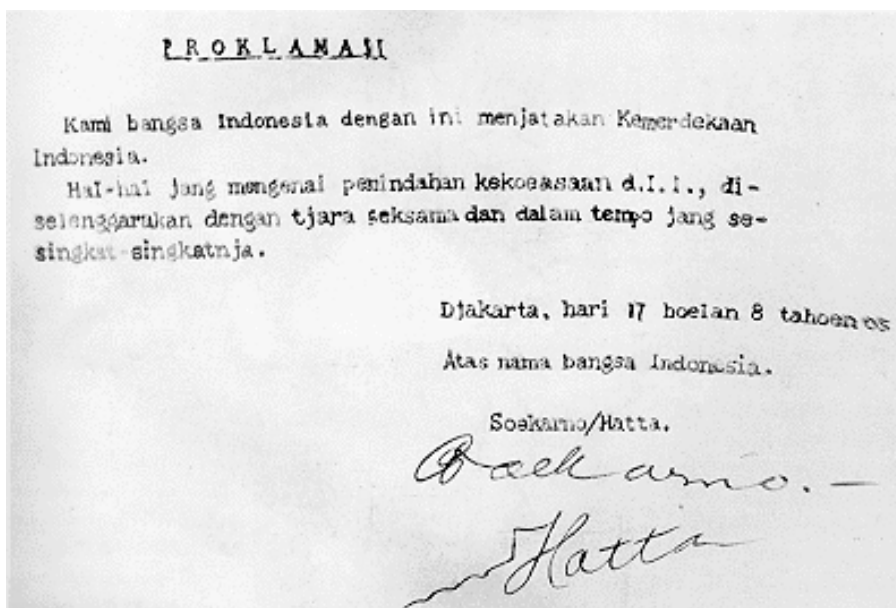 PROKLAMASI
Kami bangsa Indonesia dengan ini menjatakan Kemerdekaan
Indonesia.
Hal-hal jang mengenai pemindahan kekoeasaan d.l.l., di-
selenggarakan dengan tjara seksama dan dalam tempo jang se-
singkat-singkatnja.
Djakarta, hari 17 boelan 8 tahoen 05
Atas nama bangsa Indonesia.
Soekarno/Hatta.
Soekarno.—
Hatta